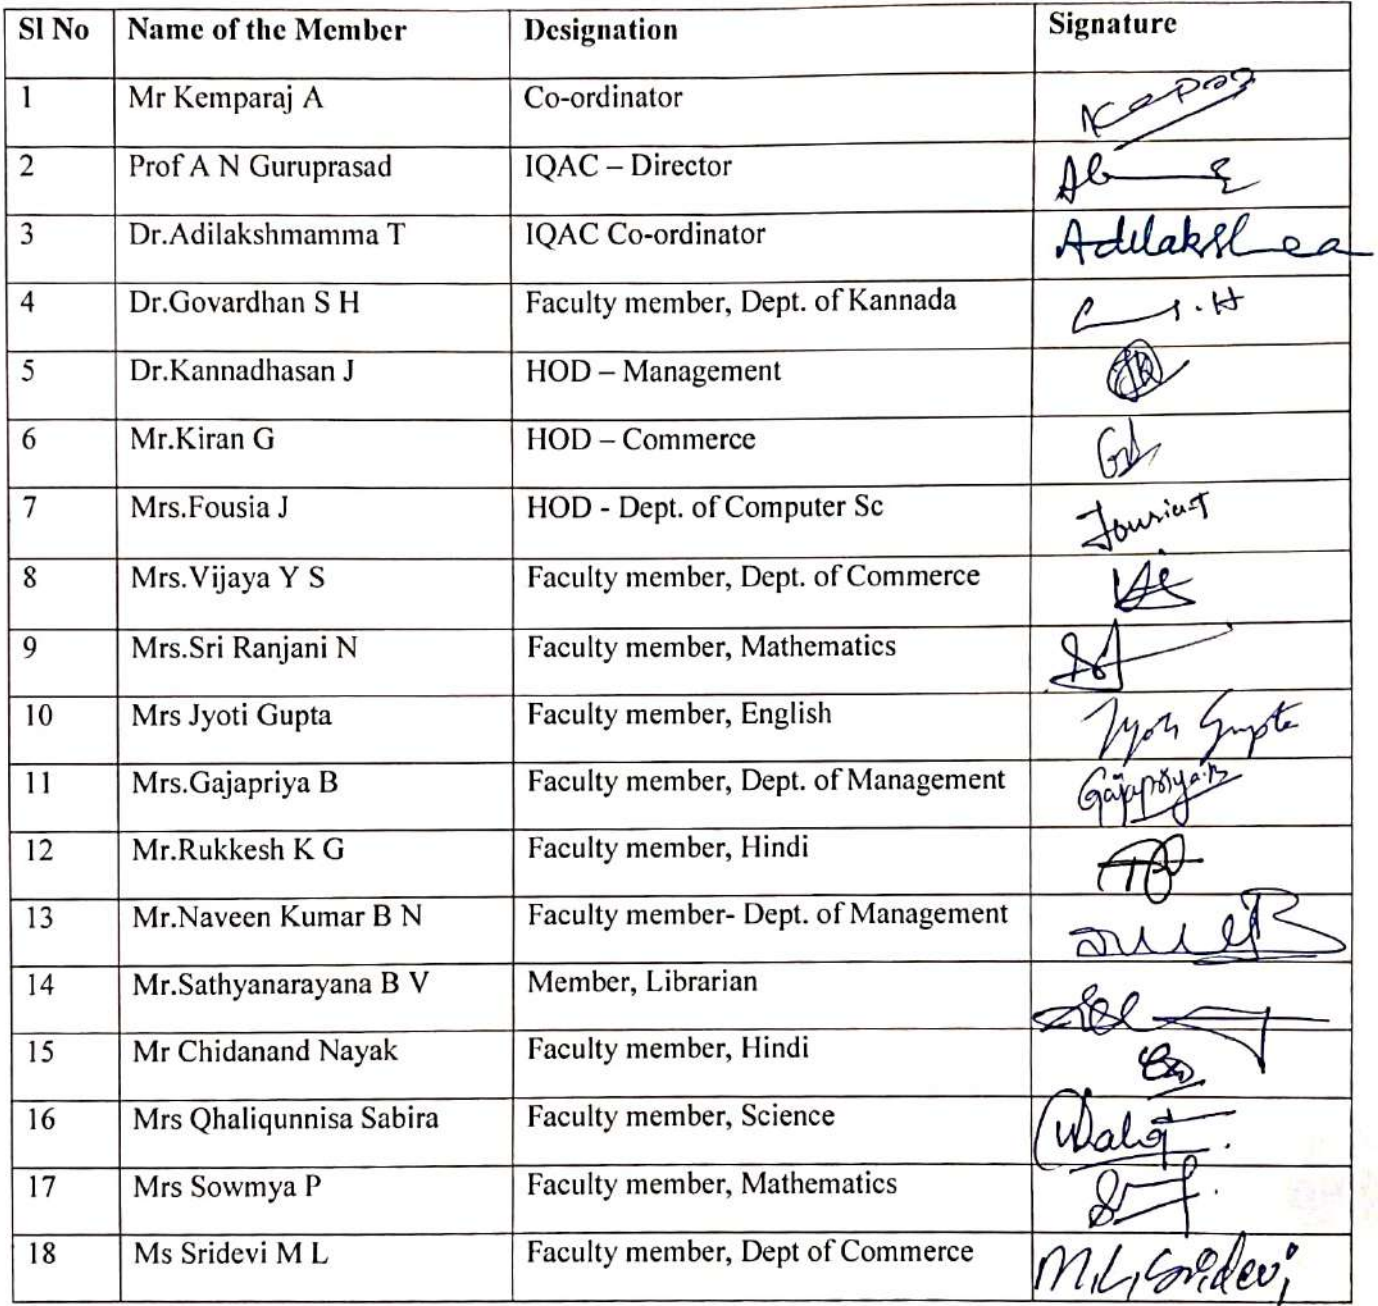 Sl No Name of the Member Designation Signature
1 Mr Kemparaj A Co-ordinator
2 Prof A N Guruprasad IQAC – Director
3 Dr.Adilakshmamma T IQAC Co-ordinator
4 Dr.Govardhan S H Faculty member, Dept. of Kannada
5 Dr.Kannadhasan J HOD – Management
6 Mr.Kiran G HOD – Commerce
7 Mrs.Fousia J HOD - Dept. of Computer Sc
8 Mrs.Vijaya Y S Faculty member, Dept. of Commerce
9 Mrs.Sri Ranjani N Faculty member, Mathematics
10 Mrs Jyoti Gupta Faculty member, English Jyoti Gupta
11 Mrs.Gajapriya B Faculty member, Dept. of Management Gajapriya.B
12 Mr.Rukkesh K G Faculty member, Hindi
13 Mr.Naveen Kumar B N Faculty member- Dept. of Management
14 Mr.Sathyanarayana B V Member, Librarian
15 Mr Chidanand Nayak Faculty member, Hindi
16 Mrs Qhaliqunnisa Sabira Faculty member, Science
17 Mrs Sowmya P Faculty member, Mathematics
18 Ms Sridevi M L Faculty member, Dept of Commerce M.L, Sridevi